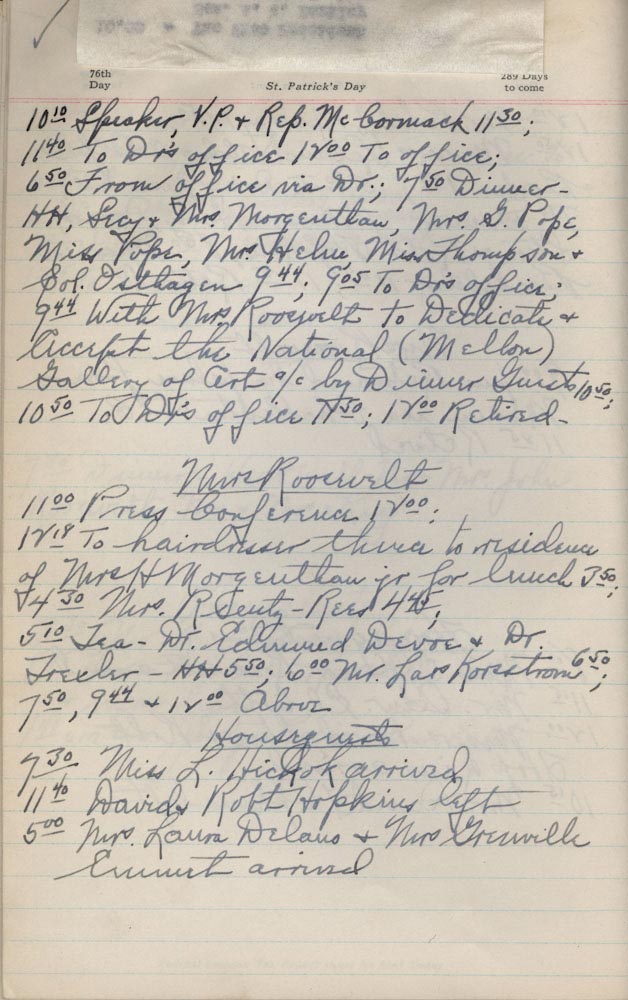 76th
Day
St. Patrick's Day
289 Days
to come
10 10 Speaker, V.P. & Rep. McCormack 11 30;
11 40 To Dr's office 12 00 To office;
6 50 From office via Dr.; 7 50 Dinner-
HH, Secy & Mrs Morgenthau, Mrs. G. Pope,
Miss Pope, Mrs Helm, Miss Thompson &
Col. Osthagen 9 44; 9 05 To Dr's office;
9 44 With Mrs Roosevelt to Dedicate &
Accept the National (Mellon)
Gallery of Art a/c by Dinner Guests 10 50;
10 50 To Dr's office 11 50; 12 00 Retired-
Mrs Roosevelt
11 00 Press Conference 12 00;
12 18 To hairdresser thence to residence
of Mrs H Morgenthau jr for lunch 3 50;
4 30 Mrs. R 4 45;
5 10 Tea - Dr. Edmund Devoe & Dr.
Trexler - HH 5 50; 6 00 Mr. Lars 6 50;
7 50, 9 44 & 12 00 Above
Houseguests
7 30 Miss L. Hickok arrived
11 40 David & Robt Hopkins left
5 00 Mrs. Laura Delano & Mrs Grenville
Emmet arrived